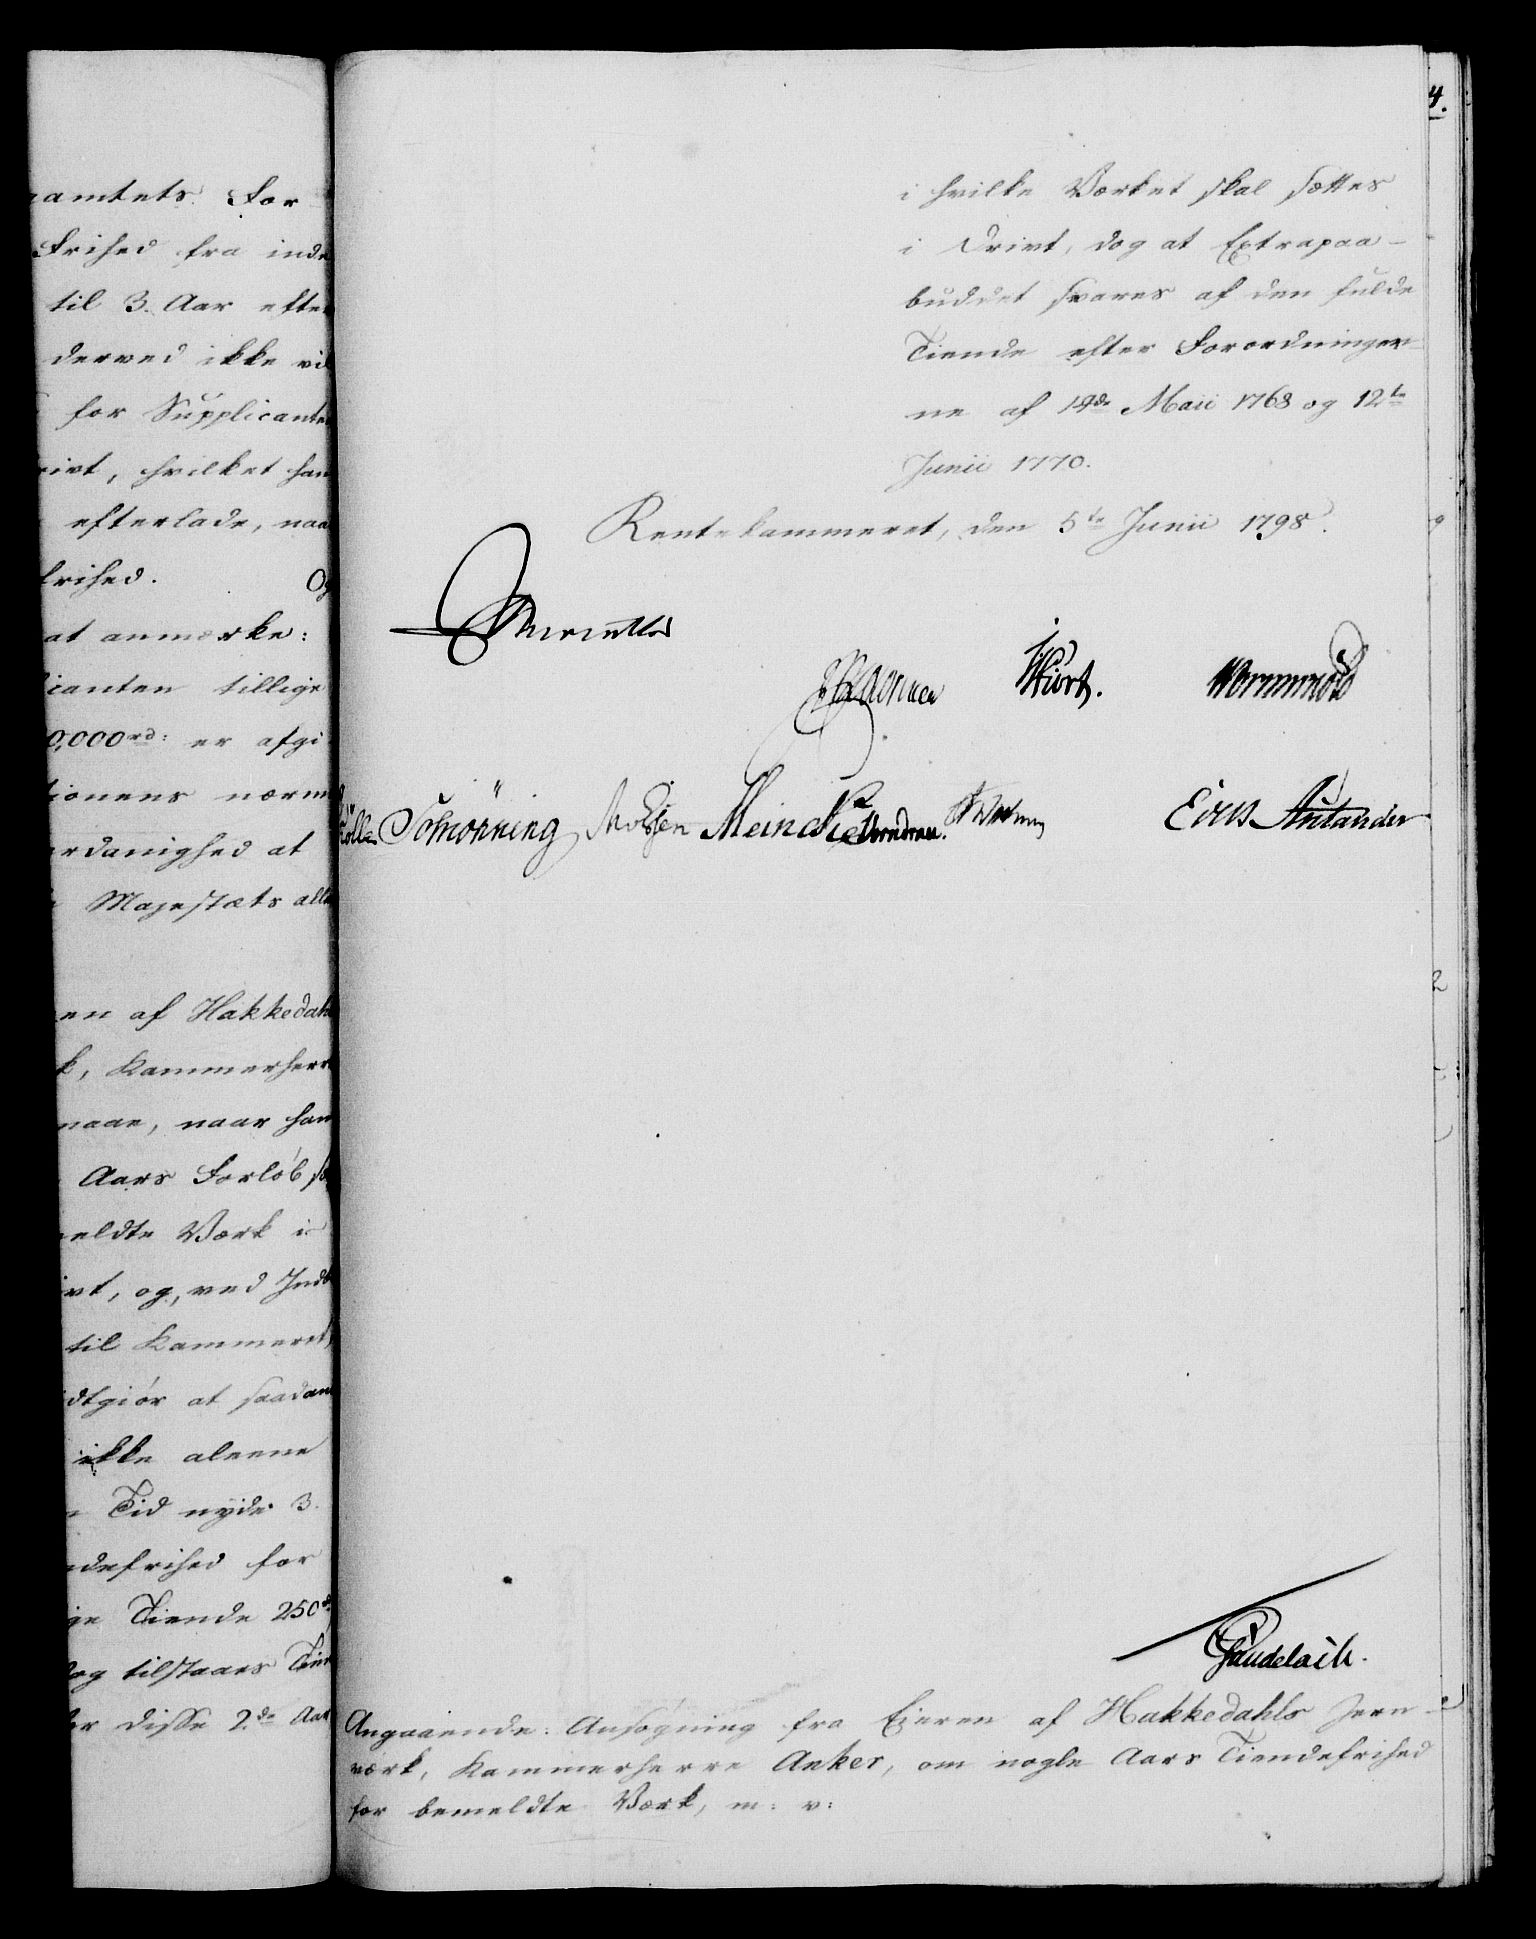 amtets For
Frihed fra inde
til 3. Aar efter
derved ikke vil
for Supplicanten
rivt, hvilket han
efterlade, naa
frihed. Og
at anmærke:
icanten tillige
0,000 rd: er afgi
tionens nærm
erdanighed at
Majestæts alle
en af Hakkedahl
k, Kammerherre
maae, naar han
Aars Forløb
meldte Værk i
ivt, og, ved Ind
til Kammeret,
idtgiør at saadan
ikke aleene
Tid nyde 3.
ndefrihed for
ge Tiende 250
og tilstaaes Tien
or disse 2de Aar
4.
i hvilke Værket skal sættes
i Drivt, dog at Extrapaa-
buddet svares af den fulde
Tiende efter Forordninger-
ne af 14de Maii 1768 og 12te
Junii 1770.
Rentekammeret, den 5te Junii 1798.
Hiort. Wormskiold
Schiönning Meincke
Selandelach.
Angaaende: Ansøgning fra Eieren af Hakkedahls Jern-
værk, Kammerherre Anker, om nogle Aars Tiendefrihed
for bemeldte Værk, m: v: